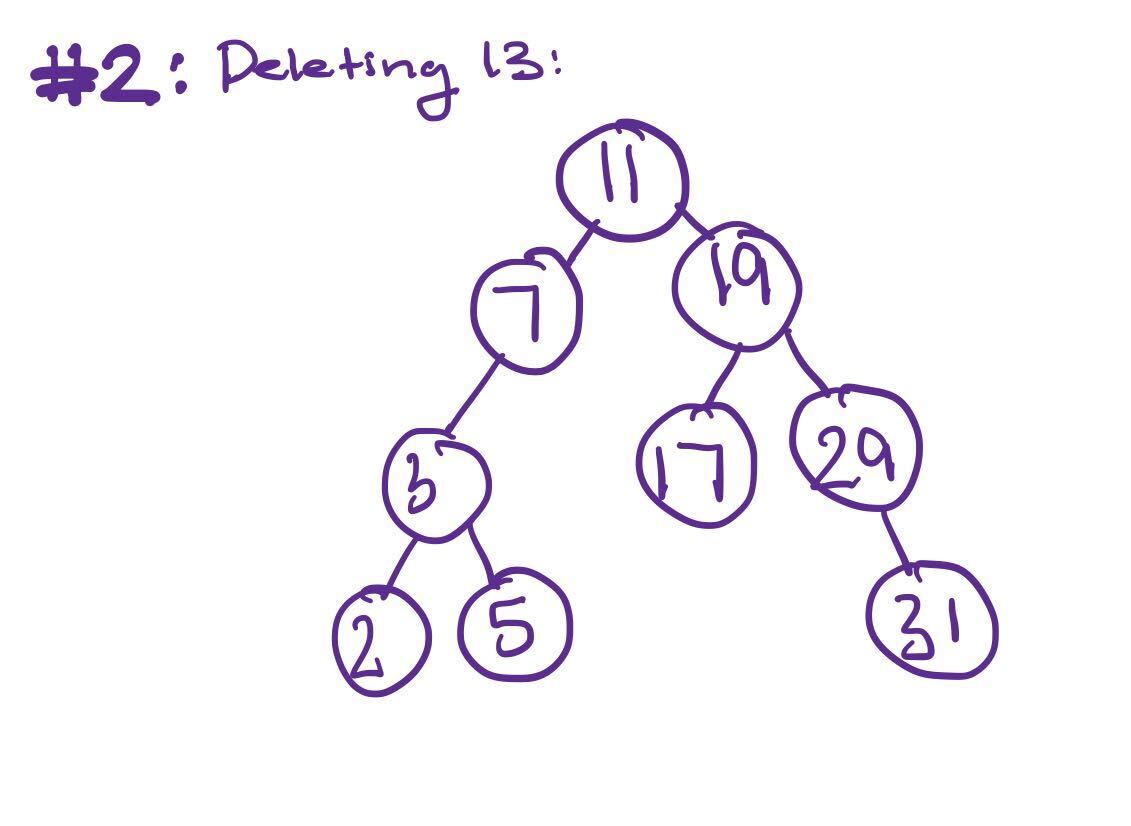 #2: Deleting 13:
11
7 19
3 17 29
2 5 31